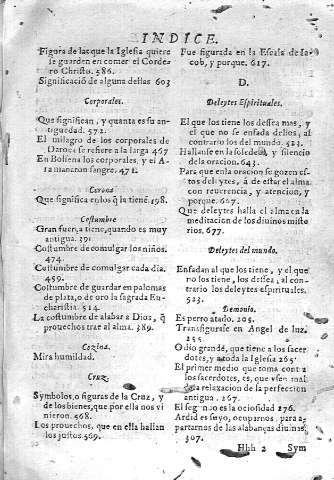 INDICE.
Figura de las que la Iglesia quiere
se guarden en comer el Corde-
ro Christo. 586.
Significació de alguna dellas 603
Corporales.
Que significan, y quanta es su an-
tiguedad. 572.
El milagro de los corporales de
Daroca se refiere a la larga 467
En Bolsena los corporales, y el A-
ra manaron sangre. 471.
Corona
Que significa en los q̃ la tiené. 198.
Costumbre
Gran fuerça tiene, quando es muy
antigua. 391
Costumbre de comulgar los niños.
474.
Costumbre de comulgar cada dia.
459.
Costumbre de guardar en palomas
de plata, o de oro la sagrada Eu-
charistia. 514.
La costumbre de alabar a Dios, q̃
prouechos trae al alma. 389.
Cozina.
Mira humildad.
Cruz.
Symbolos, o figuras de la Cruz, y
de los bienes, que por ella nos vi
nieron. 568.
Los prouechos, que en ella hallan
los justos. 569.
Fue figurada en la Escala de Ia-
cob, y porque. 617.
D.
Deleytes Espirituales.
El que los tiene los dessea mas, y
el que no se enfada dellos, al
contrario los del mundo. 523.
Hallanse en la soledad, y silencio
de la oracion. 643.
Para que en la oracion se gozen es-
tos deleytes, á de estar el alma
con reuerencia, y atencion, y
porque. 667.
Que deleytes halla el alma en la
meditacion de los diuinos miste
rios. 677.
Deleytes del mundo.
Enfadan al que los tiene, y el que
no los tiene, los dessea, al con-
trario los deleytes espirituales.
523.
Demonio.
Es perro atado. 205.
Transfigurase en Angel de luz.
255.
Odio grande, que tiene a los sacer
dotes, y a toda la Iglesia 265.
El primer medio que toma contra
los sacerdotes, es, que vsen mal
la relaxacion de la perfeccion
antigua. 267.
El segundo es la ociosidad 276.
Ardid es suyo, ocuparnos, para a-
partarnos de las alabanças diuinas
307.
Hhh 2 Sym